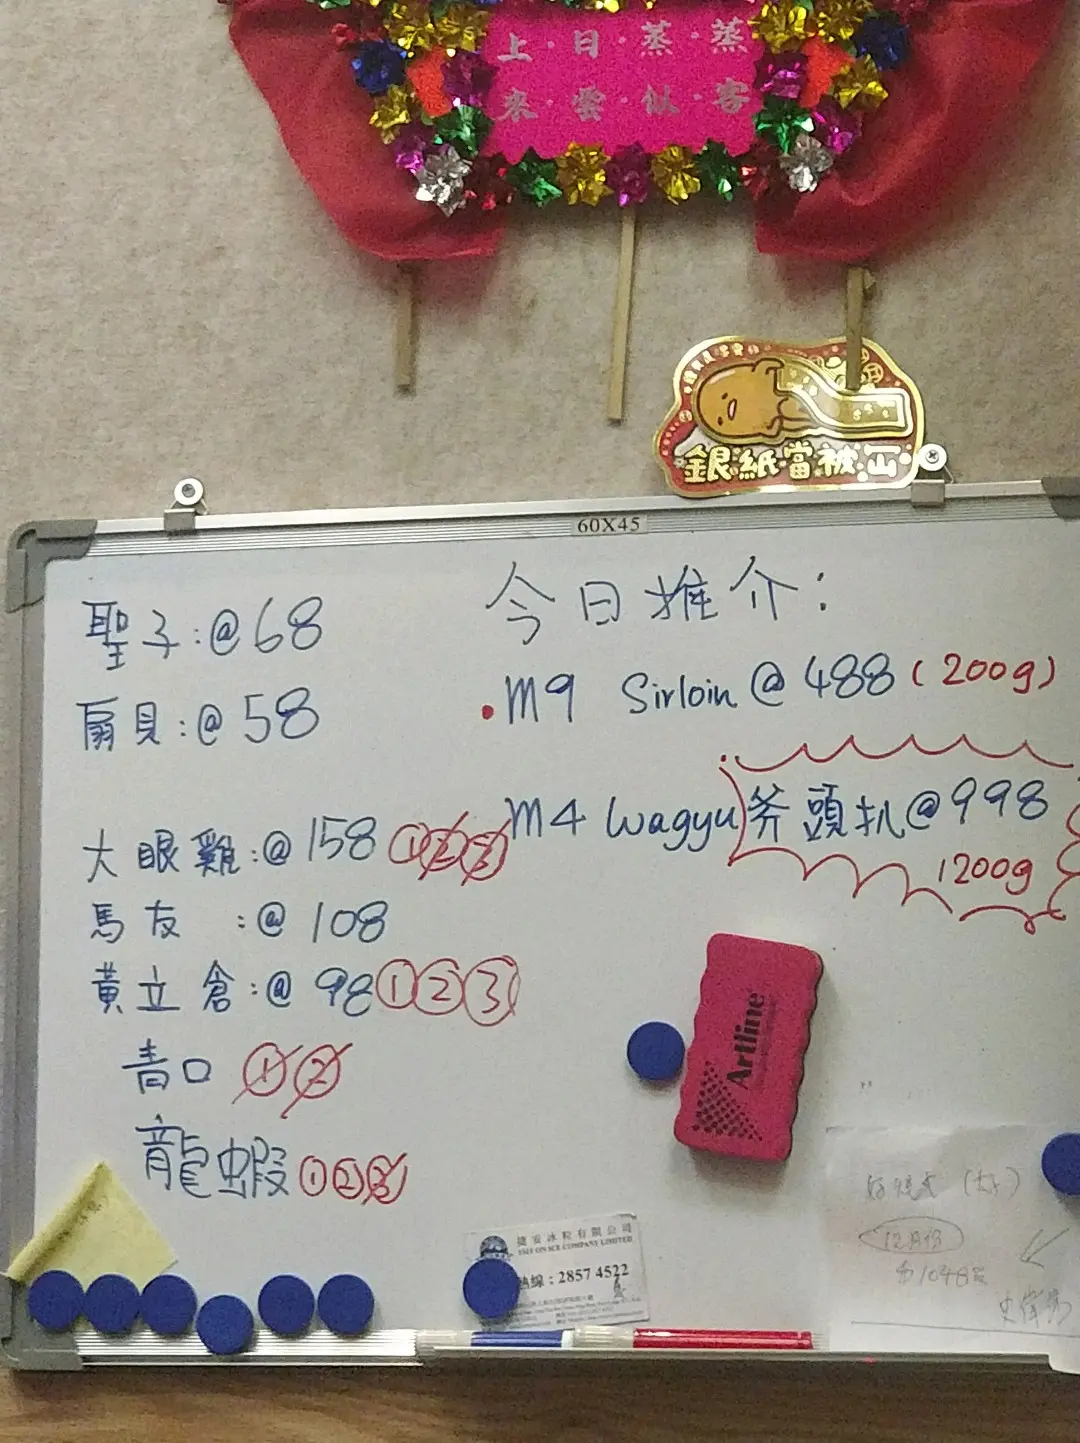 上·日·蒸·蒸
來·雲·似·客
銀紙當被冚
60X45
聖子:@68
扇貝:@58
大眼雞:@158①②③
馬友 :@108
黃立倉:@98①②③
青口 ①②
龍蝦①②③
今日推介:
•M9 Sirloin @488(200g)
M4 Wagyu斧頭扒@998
1200g
Artline
捷安冰粒有限公司
ICE COMPANY LIMITED
熱線:2857 4522
12月份